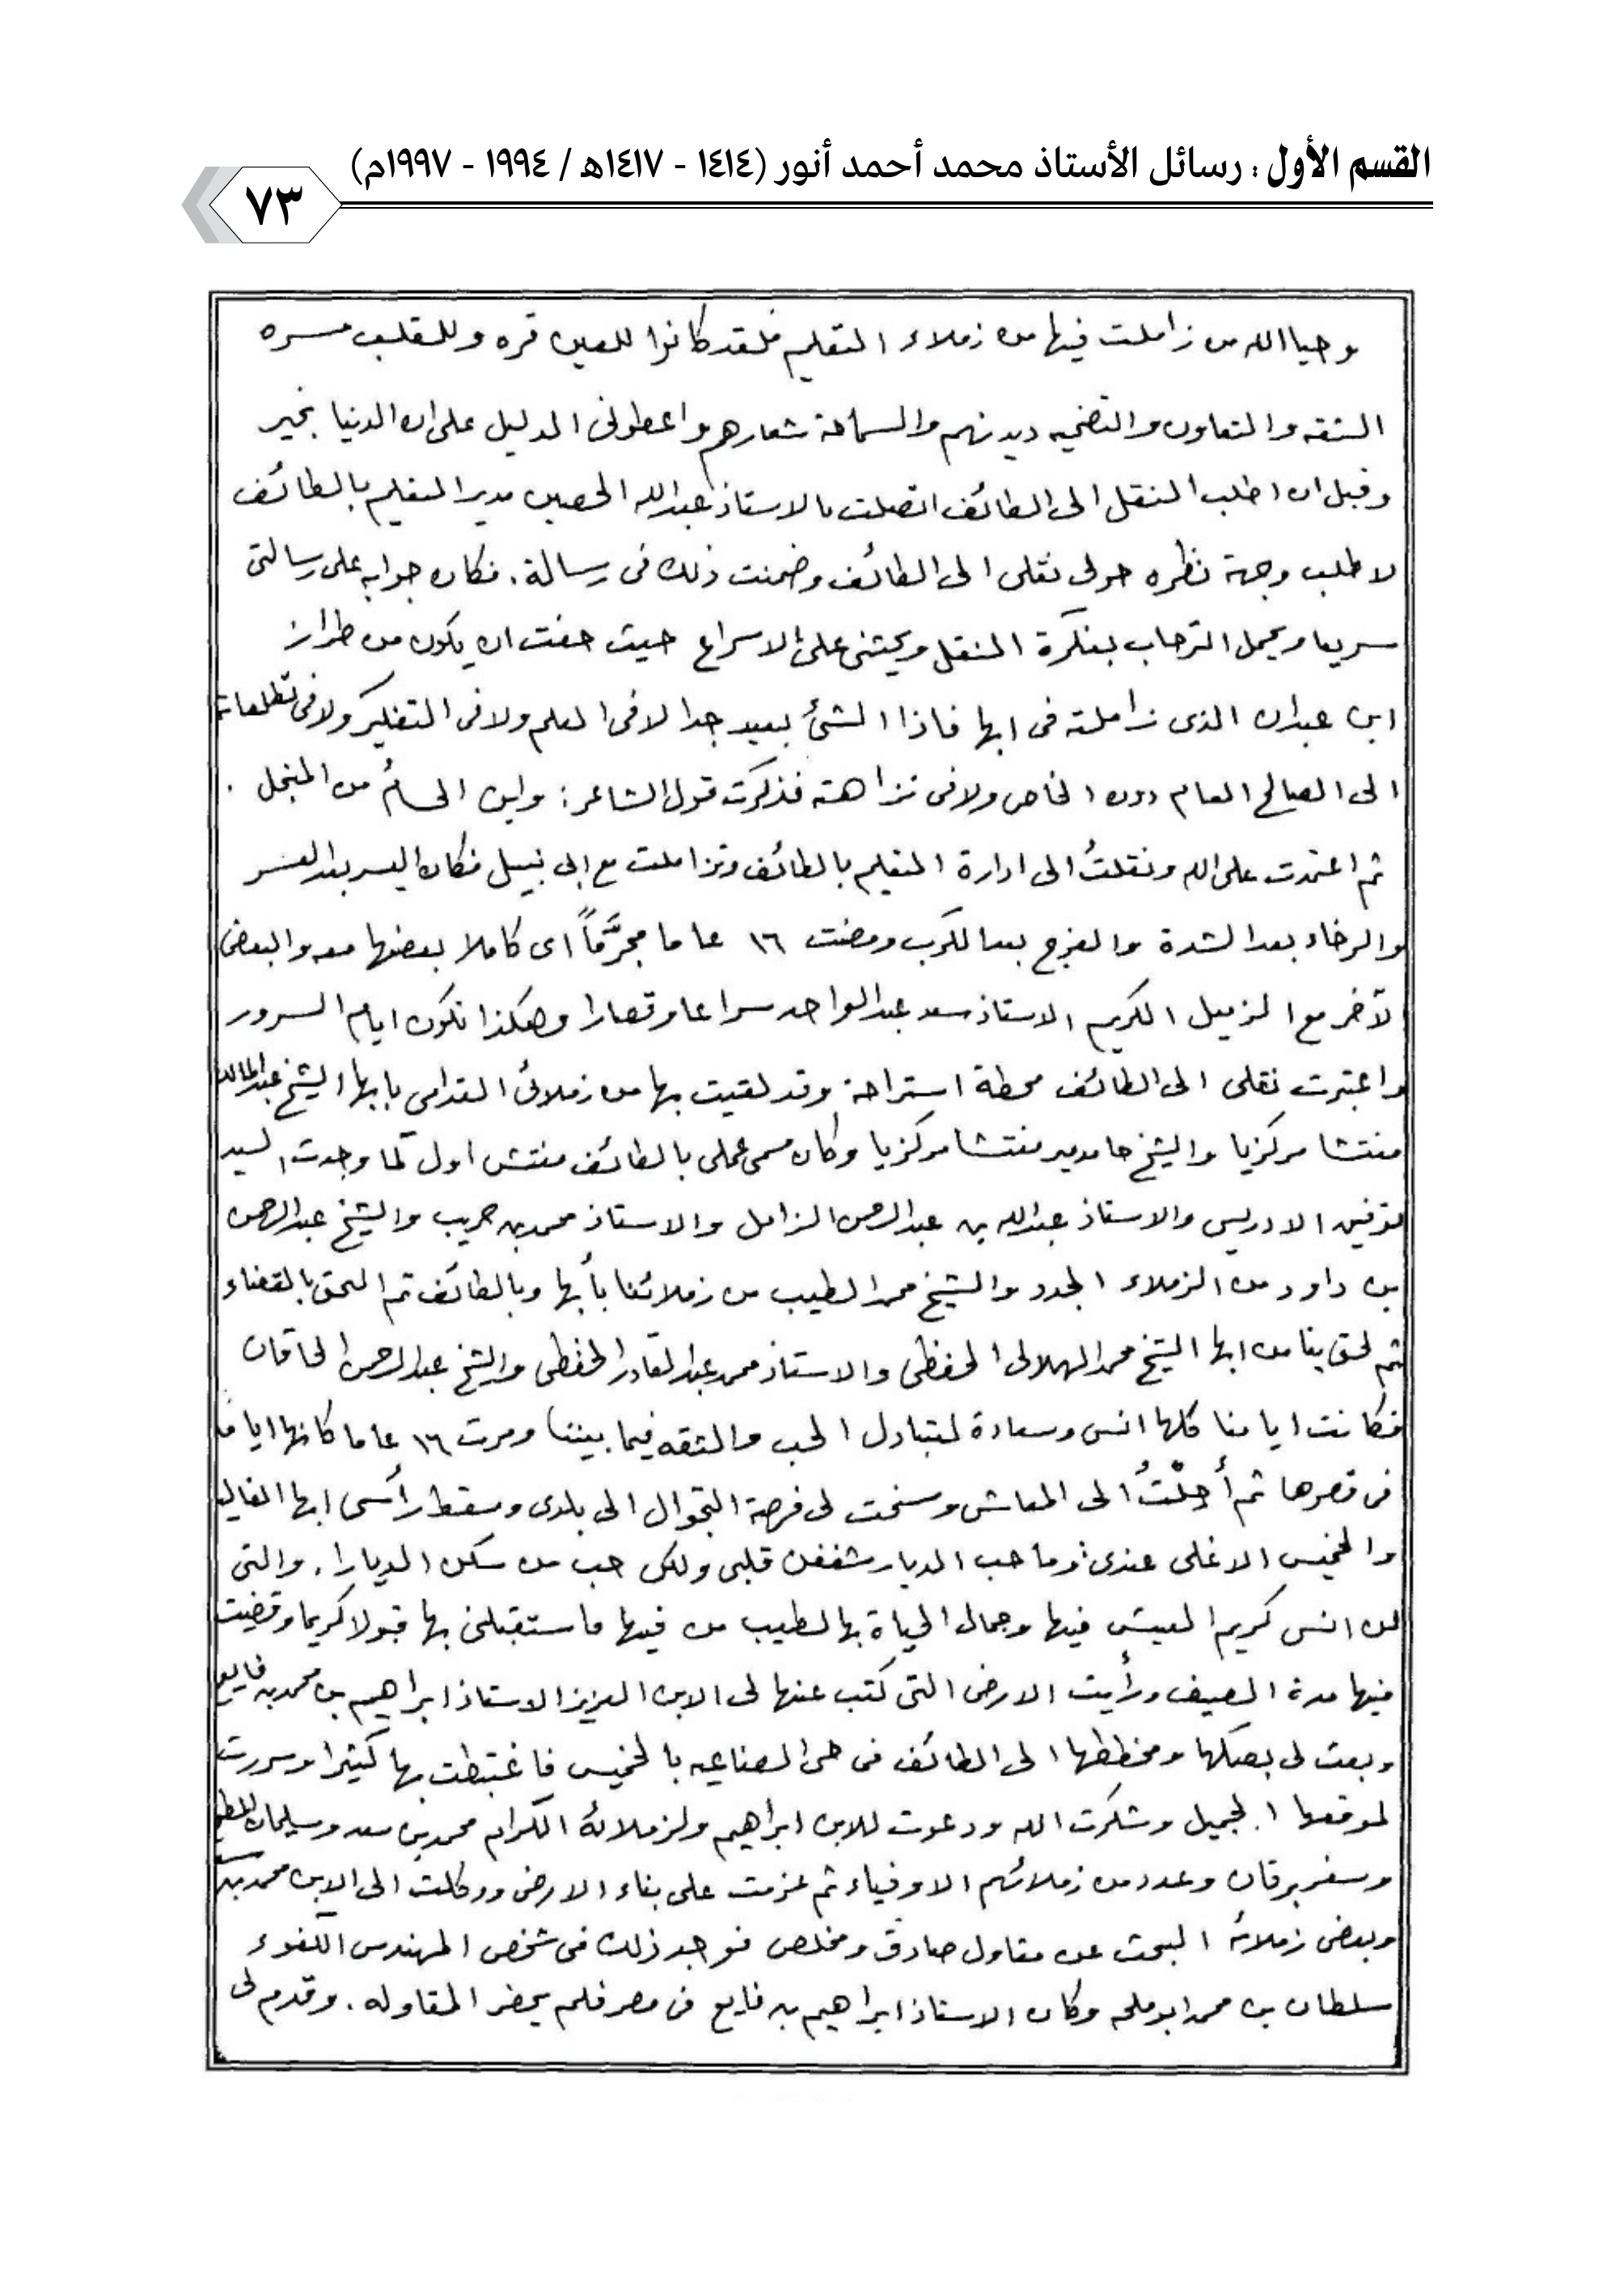 القسم الأول : رسائل الأستاذ محمد أحمد أنور (١٤١٤ - ١٤١٧هـ / ١٩٩٤ - ١٩٩٧م)
٧٣
وحيا الله من زاملت فيها من زملاء التعليم فلقد كانوا للعين قره وللقلب مسره
الثقه والتعاون والتضحيه ديدنهم والسماحة شعارهم واعطونى الدليل على ان الدنيا بخير
وقبل ان اطلب النقل الى الطائف اتصلت بالاستاذ عبدالله الحصين مدير التعليم بالطائف
لاطلب وجهة نظره حول نقلى الى الطائف وضمنت ذلك فى رسالة. فكان جوابه على رسالتى
سريعا ويحمل الترحاب بفكرة النقل ويحثنى على الاسراع حيث خفت ان يكون من طراز
ابن عبدان الذى زاملته فى ابها فاذا الشئ بعيد جدا لافى العلم ولا فى التفكير ولافى تطلعاته
الى الصالح العام دون الخاص ولافى نزاهته فذكرت قول الشاعر: واين الحسامُ من المنجل .
ثم اعتمدت على الله ونقلتُ الى ادارة التعليم بالطائف وتزاملت مع ابى نبيل فكان اليسر بعد العسر
والرخاء بعد الشدة والفرج بعد الكرب ومضت ١٦ عاما مجرَّماً اى كاملا بعضها معه والبعض
الآخر مع الزميل الكريم الاستاذ سعد عبدالواحد سراعا وقصارا وهكذا تكون ايام السرور
واعتبرت نقلى الى الطائف محطة استراحة وقد لقيت بها من زملائى القدامى بابها الشيخ عبدالمالك
مفتشا مركزيا والشيخ حامد مفتشا مركزيا وكان مسمى عملى بالطائف مفتش اول كما وجدت السيد
توفيق الادريس والاستاذ عبدالله بن عبدالرحمن الزامل والاستاذ محمد بن حريب والشيخ عبدالرحمن
بن داود من الزملاء الجدد والشيخ محمد الطيب من زملائنا بأبها وبالطائف ثم التحق بالقضاء
ثم لحق بنا من ابها الشيخ محمد الهلالى الحفظى والاستاذ محمد عبدالقادر الحفظى والشيخ عبدالرحمن الحاقان
فكانت ايامنا كلها انس وسعادة لتبادل الحب والثقه فيما بيننا ومرت ١٦ عاما كانها اياما
فى قصرها ثم أُحِلْتُ الى المعاش وسنحت لى فرصة التجوال الى بلدى ومسقط رأسى ابها الغاليه
والخميس الاغلى عندى: وما حب الديار شغفن قلبى ولكن حب من سكن الديارا. والتى
لن انسى كريم العيش فيها وجمال الحياة بها لطيب من فيها فاستقبلنى بها قبولا كريما وقضيت
فيها مدة الصيف ورأيت الارض التى كتب عنها لى الابن العزيز الاستاذ ابراهيم بن محمد بن فايع
وبعث لى بصكها ومخططها الى الطائف فى حى الصناعيه بالخميس فاغتبطت بها كثيرا وسررت
لموقعها الجميل وشكرت الله ودعوت للابن ابراهيم ولزملائه الكرام محمد بن سعد وسليمان
وسفر برقان وعدد من زملائهم الاوفياء ثم عزمت على بناء الارض ووكلت الى الابن محمد بن
وبعض زملائه البحث عن مقاول صادق ومخلص فوجد ذلك فى شخص المهندس الكفوء
سلطان بن محمد ابوملحه وكان الاستاذ ابراهيم بن فايع فى مصر فلم يحضر المقاوله. وقدم لى